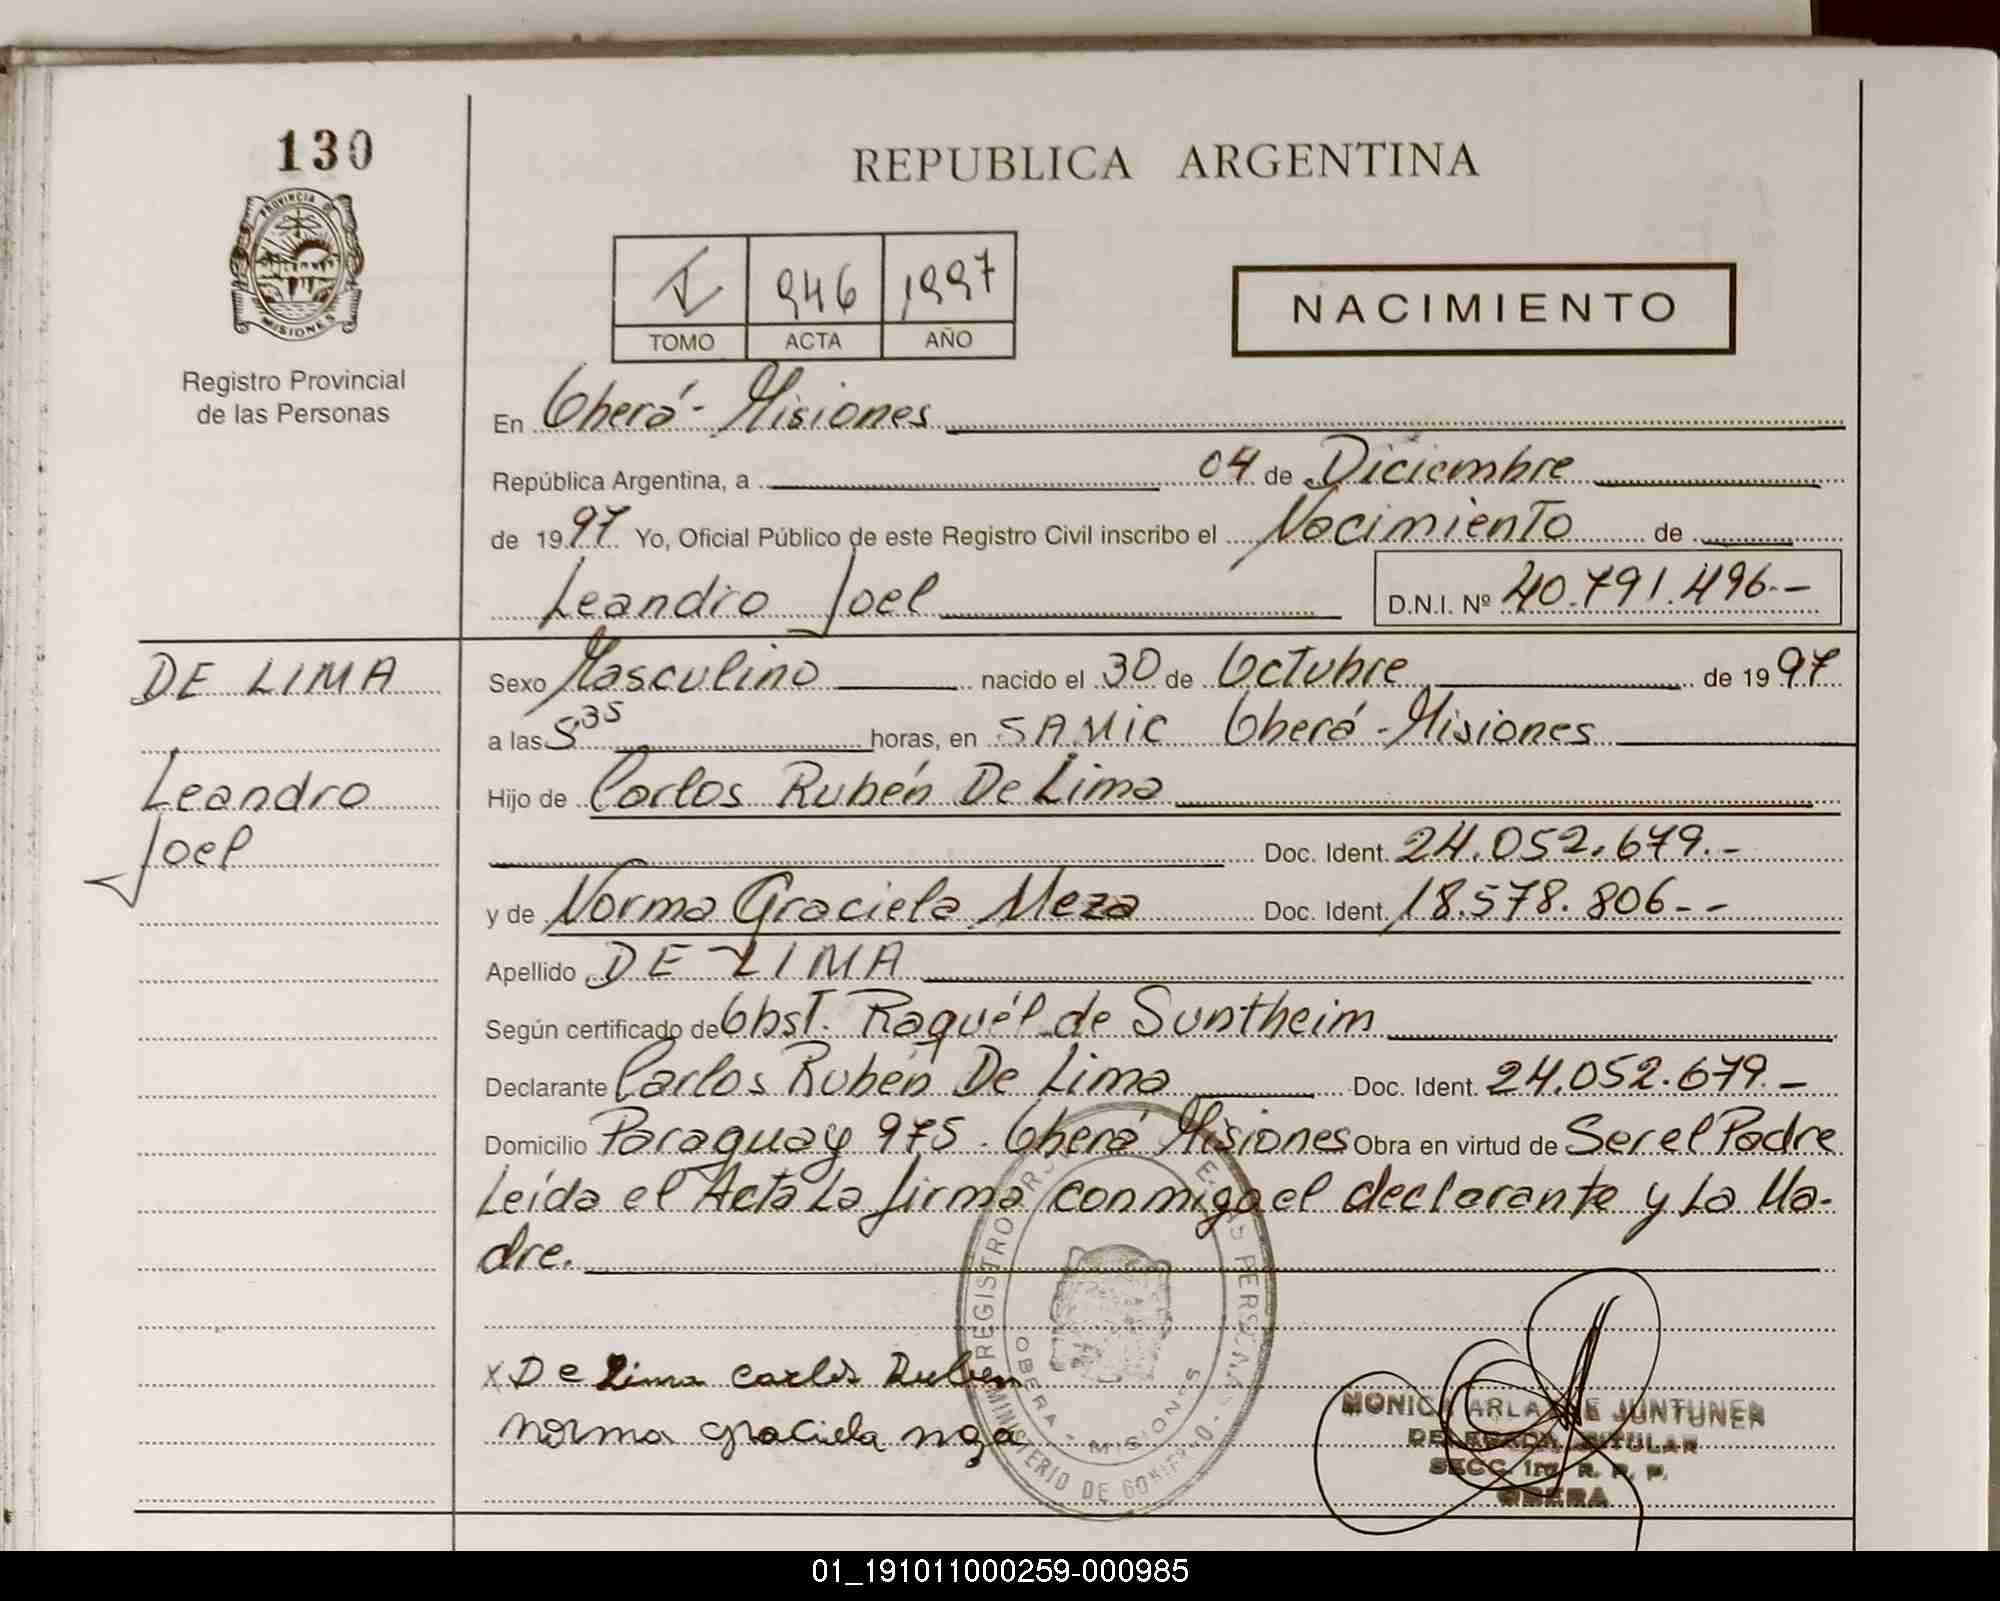 130
PROVINCIA DE
MISIONES
Registro Provincial
de las Personas
REPUBLICA ARGENTINA
I 946 1997
TOMO ACTA AÑO
NACIMIENTO
En Oberá - Misiones
República Argentina, a 04 de Diciembre
de 1997 Yo, Oficial Público de este Registro Civil inscribo el Nacimiento de
Leandro Joel D.N.I. Nº 40.791.496.-
DE LIMA
Leandro
Joel
Sexo Masculino nacido el 30 de Octubre de 1997
a las 5 35 horas, en SAMIC Oberá - Misiones
Hijo de Carlos Rubén De Lima
Doc. Ident. 24.052.679.-
y de Norma Graciela Meza Doc. Ident. 18.578.806--
Apellido DE LIMA
Según certificado de Obst. Raquél de Suntheim
Declarante Carlos Rubén De Lima Doc. Ident. 24.052.679.-
Domicilio Paraguay 975. Oberá Misiones Obra en virtud de Ser el Padre
Leída el Acta La firma conmigo el declarante y La Ma-
dre.
x De Lima Carlos Ruben
norma graciela
REGISTRO PERSONAS
OBERA - MISIONES
MINISTERIO DE GOBIERNO
MONICA ARLA DE JUNTUNEN
DELEGADA TITULAR
SECC. 1ra. R. P. P.
OBERA
01_191011000259-000985